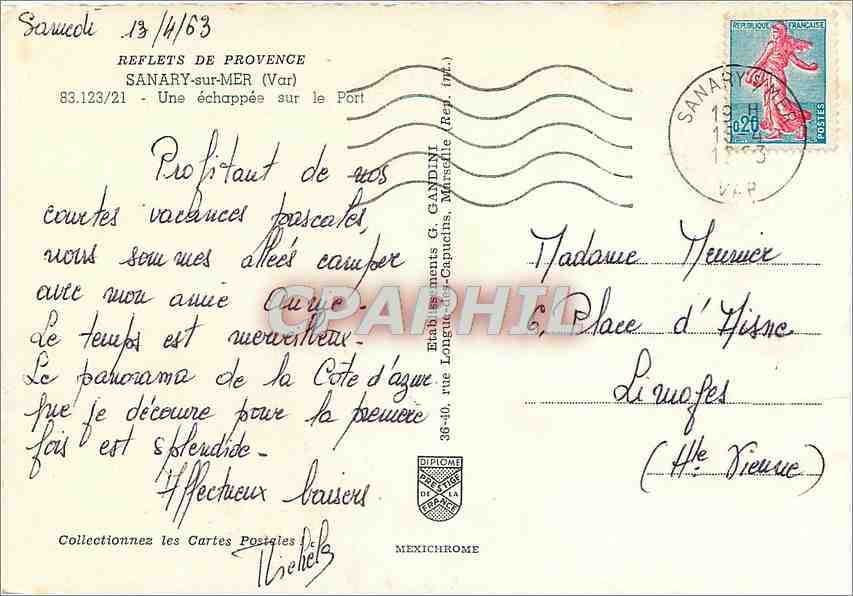 Samedi 13/4/63
REFLETS DE PROVENCE
SANARY-sur-MER (Var)
83.123/21 - Une échappée sur le Port
Profitant de nos
courtes vacances pascales,
nous sommes allées camper
avec mon amie Annie.
Le temps est merveilleux.
Le panorama de la Côte d'azur
que je découvre pour la première
fois est splendide.
Affectueux baisers
Michèle
Collectionnez les Cartes Postales !
Etablissements G. GANDINI
36-40, rue Longue-des-Capucins, Marseille (Rep. int.)
DIPLOME
PRESTIGE
DE LA
FRANCE
MEXICHROME
REPUBLIQUE FRANÇAISE
0,20
POSTES
SANARY S/MER
19 H
13-4
1963
VAR
Madame Meunier
6, Place d'Aisne
Limoges
(Hte Vienne)
CPAPHIL